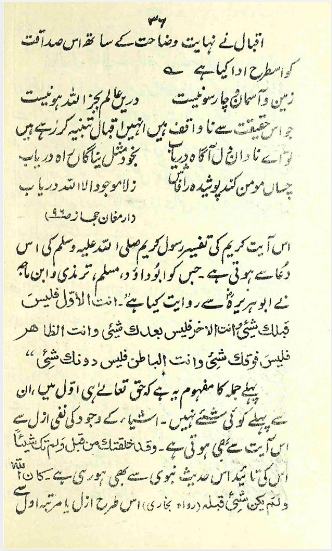 ۳۶
اقبال نے نہایت وضاحت کے ساتھ اس صداقت
کو اسطرح ادا کیا ہے
زمین و آسمان و چار سو نیست دریں عالم بجز اللہ ہو نیست
جو اس حقیقت سے ناواقف ہیں انہیں اقبال تنبیہ کر رہے ہیں
تو اے ناداں دل آگاہ دریاب بخود مثل نیاگاں راہ دریاب
چساں مومن کند پوشیدہ را فاش ز لا موجود الا اللہ دریاب
(ارمغان حجاز ص۹۶)
اس آیت کریم کی تفسیر رسول کریم صلی اللہ علیہ وسلم کی اس
دعا سے ہوتی ہے۔ جس کو ابوداؤد، مسلم، ترمذی و ابن ماجہ
نے ابوہریرہؓ سے روایت کیا ہے"۔ انت الاول فلیس
قبلک شئی وانت الاٰخر فلیس بعدک شئی وانت الظاھر
فلیس فوقک شئی وانت الباطن فلیس دونک شئی"
پہلے جملہ کا مفہوم یہ ہے کہ حق تعالےٰ ہی اول ہیں، ان
سے پہلے کوئی شئے نہیں۔ اشیاء کے وجود کی نفی ازل سے
اس آیت سے بھی ہوتی ہے۔ وقد خلقتک من قبل ولم تک شیئاً
اس کی تائید اس حدیث نبوی سے بھی ہو رہی ہے۔ کان اللہ
ولم یکن شئی قبلہ (رواہ بخاری) اس طرح ازل یا مرتبہ اول سے